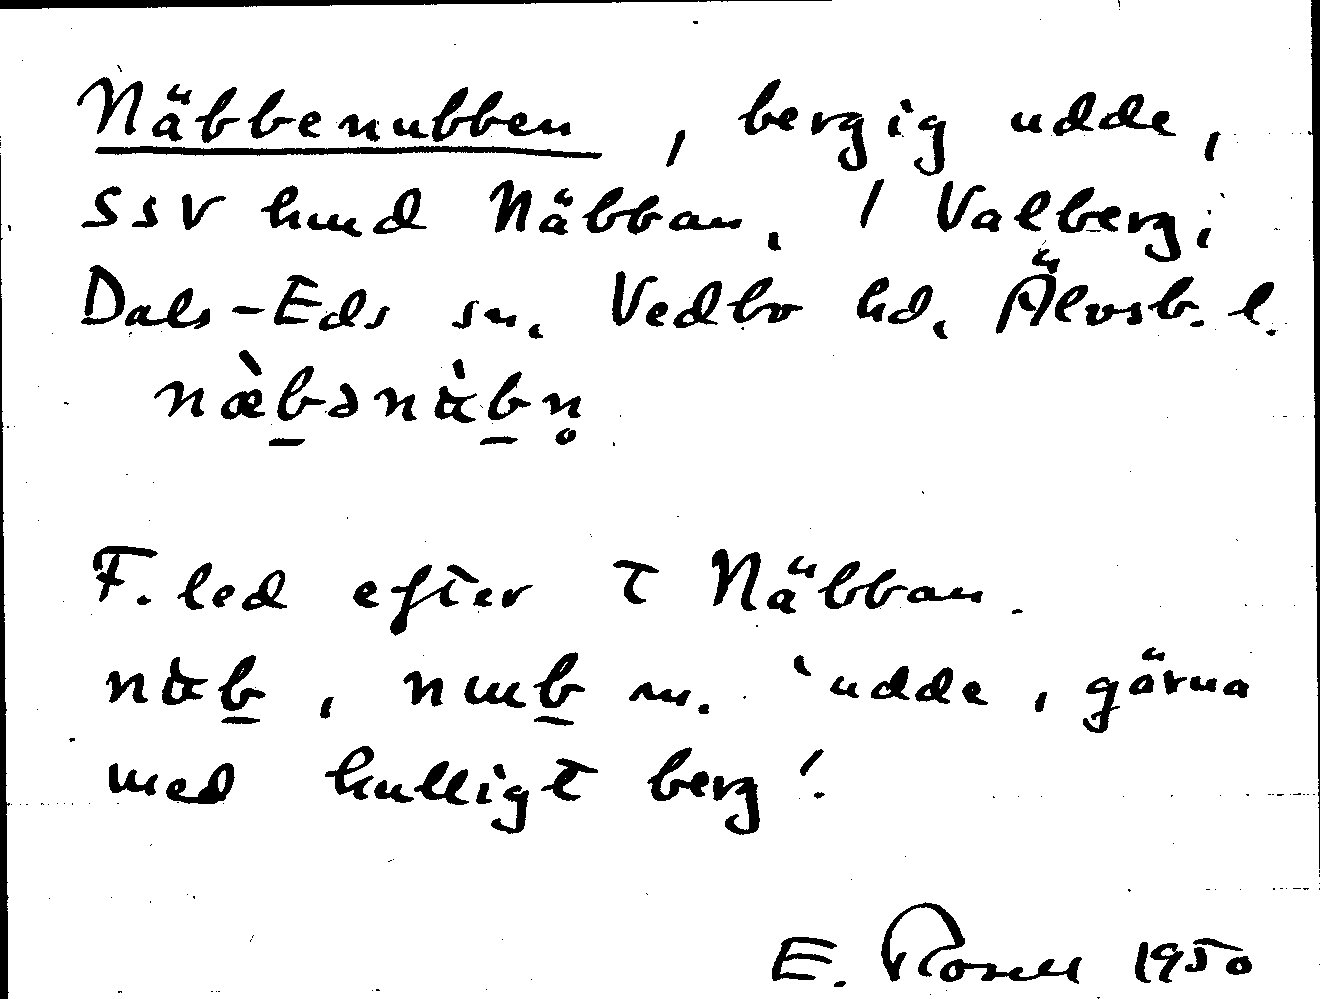 Näbbenubben, bergig udde,
SSV hmd Näbban, / Valberg,
Dals-Eds sn, Vedbo hd, Älvsb. l.
næ̀b̲ənɑ̀b̲n̥
F. led efter t Näbban.
nɑ̀b̲, nɯb̲ m. 'udde, gärna
med kulligt berg'.
E. Rosell 1950